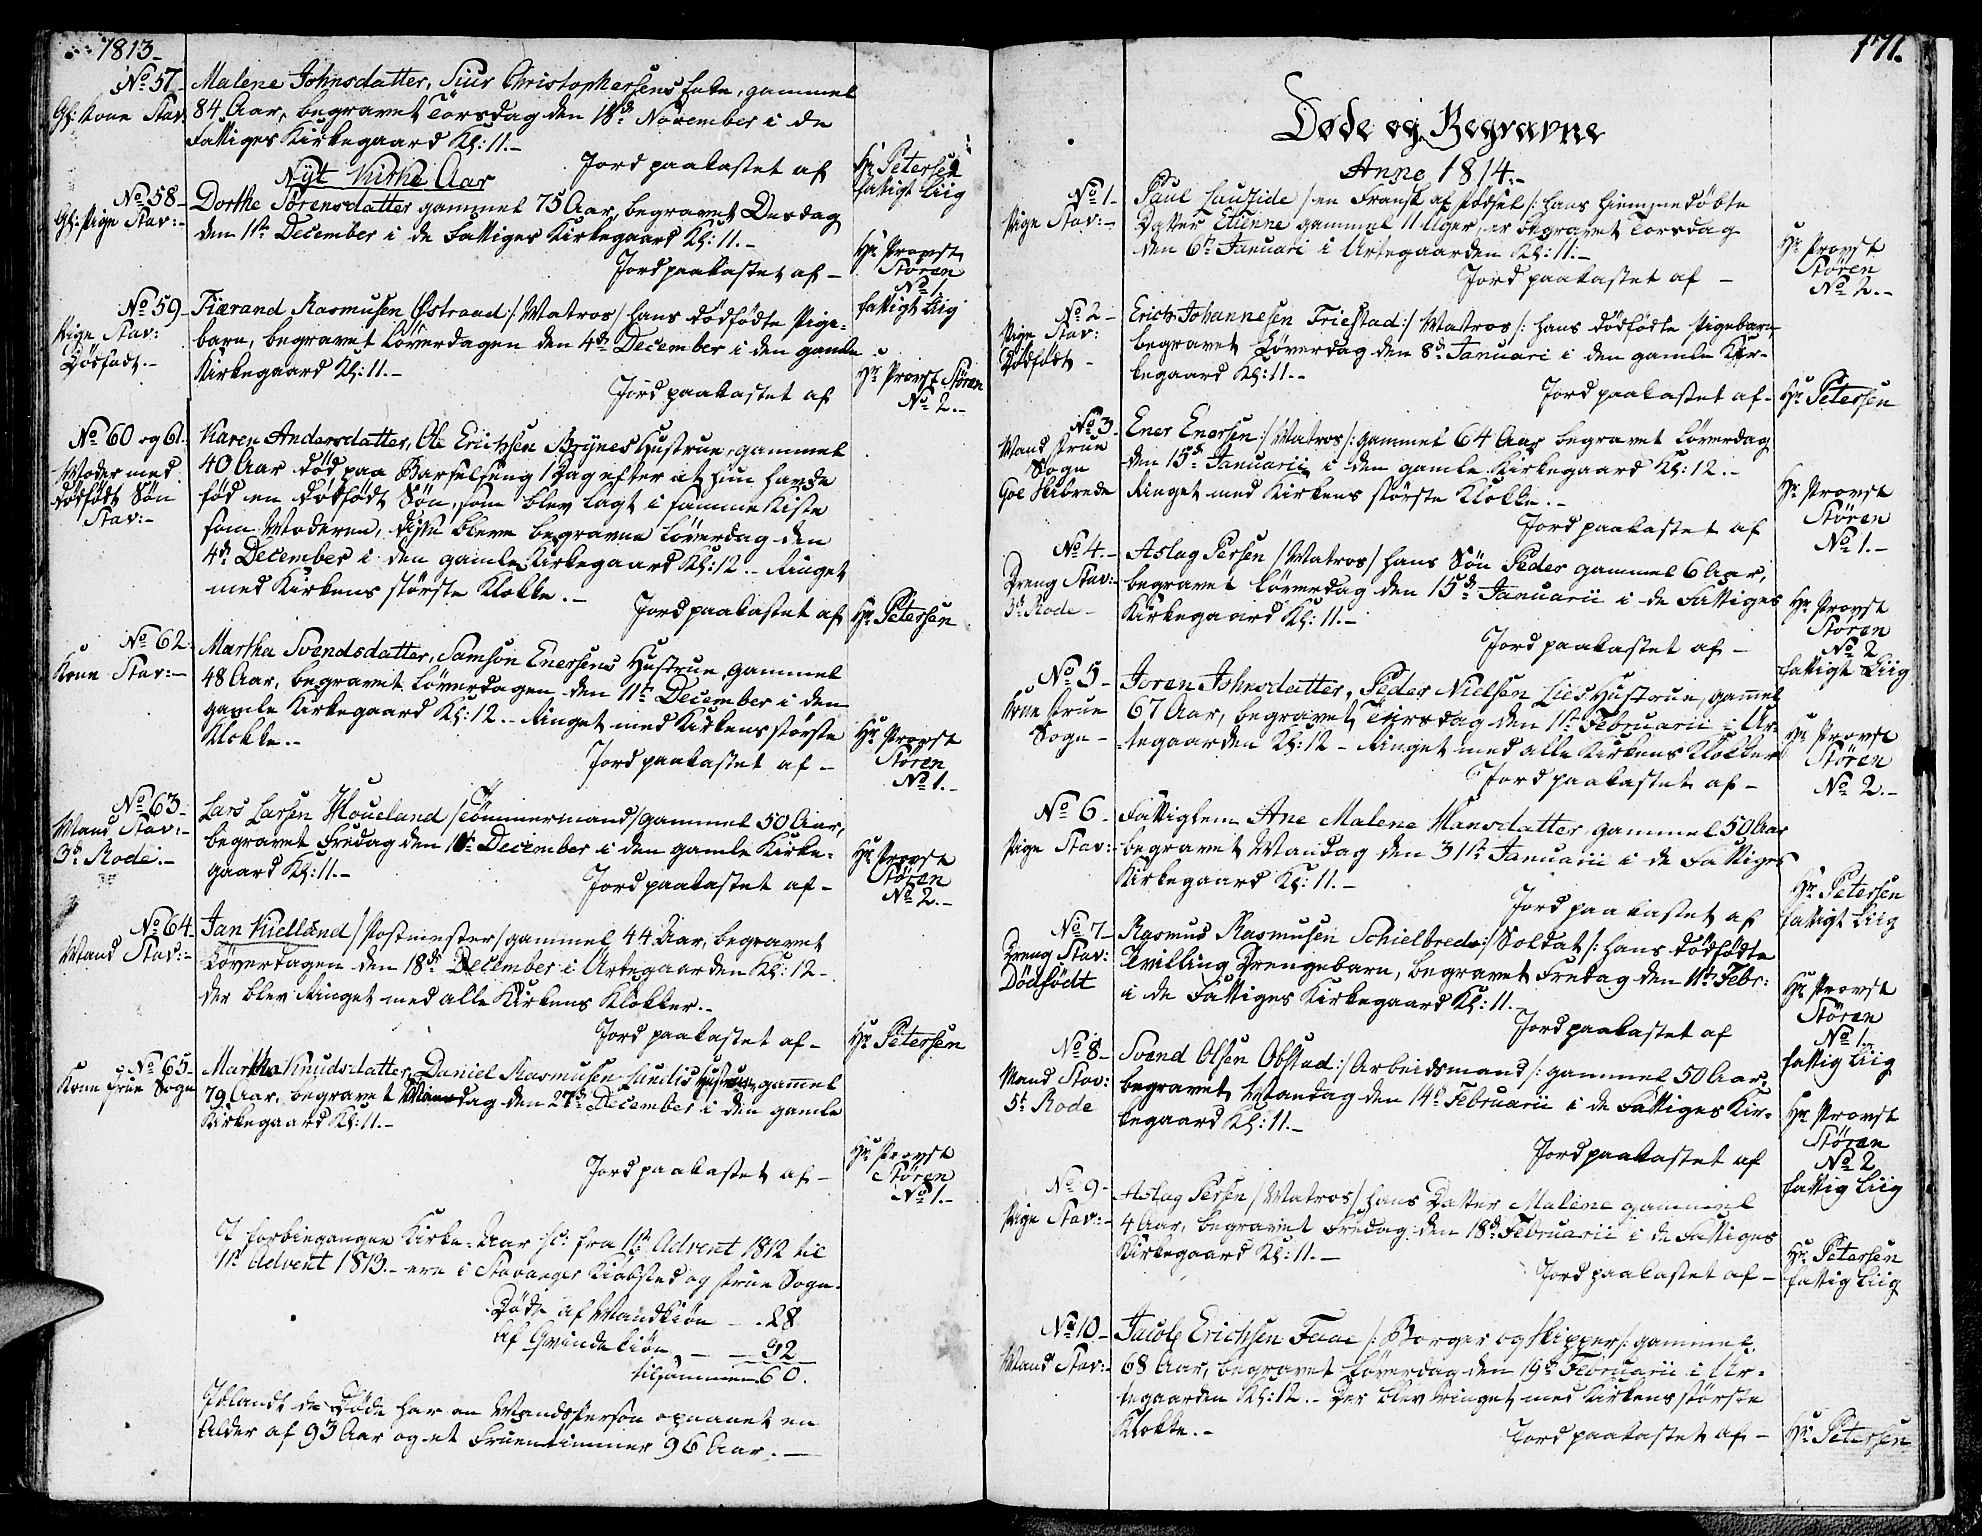 1813.
No 57.
Gl: Kone Stav.
Malene Johnsdatter, Siur Christophersens Enke, gammel
84 Aar, begravet Torsdag den 18de November i de
Fattiges Kirkegaard Kl: 11.-
Jord paakastet af
Hr Petersen
fattigt Liig
Nyt Kirke Aar
No 58.
Gl: Pige Stav:-
Dorthe Sörensdatter gammel 75 Aar, begravet Onsdag
den 11te December i de Fattiges Kirkegaard Kl: 11.-
Jord paakastet af -
Hr Provst
Stören
No 1.
fattigt Liig
No 59.
Pige Stav:
Dödfödt.-
Tiærand Rasmusen Østraad /: Matros / hans dödfödte Pige-
barn, begravet Löverdagen den 4de December i den gamle
Kirkegaard Kl: 11.-
Jord paakastet af
Hr Provst Stören
No 2.-
No 60 og 61.
Moder med
dödfödt Sön
Stav:-
Karen Andersdatter, Ole Erichsen Brynes Hustrue, gammel
40 Aar död paa Barselseng 1 Dag efter at hun havde
fød en dödfödt Sön, som blev lagt i samme Kiste
som Moderen, disse bleve begravne Löverdag den
4de December i den gamle Kirkegaard Kl: 12.- Ringet
med Kirkens störste Klokke.-
Jord paakastet af
Hr Petersen
No 62.
Kone Stav:-
Martha Svendsdatter, Samson Enersens Hustrue gammel
48 Aar, begravet Löverdagen den 11te December i den
gamle Kirkegaard Kl: 12.- Ringet med Kirkens störste
Klokke.-
Jord paakastet af -
Hr Provst
Stören
No 1.-
No 63.
Mand Stav:-
3de Rode.-
Lars Larsen Houeland /Tömmermand/ gammel 50 Aar,
begravet Fredag den 10de December i den gamle Kirke-
gaard Kl: 11.-
Jord paakastet af -
Hr Provst
Stören
No 2.-
No 64.
Mand Stav:-
Jan Kielland /Postmester/ gammel 44 Aar, begravet
Löverdagen den 18de December i Urtegaarden Kl: 12-
der blev Ringet med alle Kirkens Klokker.-
Jord paakastet af -
Hr Petersen
No 65.
Kone Frue Sogn
Martha Knudsdatter, Daniel Rasmusen Hustrue, gammel
79 Aar, begravet Mandag den 27de December i den gamle
Kirkegaard Kl: 11.-
Jord paakastet af -
Hr Provst
Stören
No 1.-
I forbigangen Kirke-Aar fra 1te Advent 1812 til
1te Advent 1813.- ere i Stavanger Kiøbsted og Frue Sogn
Döde af Mandkiön - 28
af Qvindekiön - 32
tilsammen 60.
Iblandt de Døde har en Mands Person opnaaet en
Alder af 93 Aar og et Fruentimmer 96 Aar.-
171.
Døde og Begravne
Anno 1814.-
No 1.
Pige Stav:-
Paul / en Fransk af födsel /: hans hiemmedöbte
Datter Etienne gammel 11 Uger, er begravet Torsdag
den 6te Januari i Urtegaarden Kl: 11.-
Jord paakastet af -
Hr Provst
Stören
No 2.-
No 2.
Pige Stav:
Dödfödt -
Erich Johannesen Friestad /: Matros /: hans dödfödte Pigebarn
begravet Löverdag den 8de Januari i den gamle Kir-
kegaard Kl: 11.-
Jord paakastet af -
Hr Petersen
No 3.
Mand Frue
Sogn
Ener Enersen /: Matros /: gammel 64 Aar begravet Löverdag
den 15de Januarii i den gamle Kirkegaard Kl: 12.-
Ringet med Kirkens störste Klokke.-
Jord paakastet af
Hr Provst
Stören
No 1.-
No 4.
Dreng Stav:-
3de Rode -
Aslag Persen /Matros/ hans Sön Peder gammel 6 Aar,
begravet Löverdag den 15de Januarii i de Fattiges
Kirkegaard Kl: 11.-
Jord paakastet af -
Hr Provst
Stören
No 2
fattigt Liig
No 5.
Kone Frue
Sogn -
Joren Johnsdatter, Peder Nielsen Lies Hustrue, gammel
67 Aar, begravet Tirsdag den 1ste Februarii i Ur-
tegaarden Kl: 12 - Ringet med alle Kirkens Klokker
Jord paakastet af -
Hr Provst
Stören
No 2.-
No 6.
Pige Stav:-
Fattiglem Ane Malene Hansdatter gammel 50 Aar
begravet Mandag den 31te Januarii i de Fattiges
Kirkegaard Kl: 11.-
Jord paakastet af
Hr Petersen
fattigt Liig
No 7.
Dreng Stav:
Dödfödt
Rasmus Rasmusen Schielbred /: Soldat /: hans dödfödte
Tvilling Drengebarn, begravet Fredag den 11te Febr:
i de Fattiges Kirkegaard Kl: 11.
Jord paakastet af
Hr Provst
Stören
No 1.
fattig Liig
No 8.
Mand Stav:
5te Rode
Svend Olsen Obstad /: Arbeidsmand /: gammel 50 Aar,
begravet Mandag den 14de Februarii i de Fattiges Kir-
kegaard Kl: 11.-
Jord paakastet af
Hr Provst
Stören
No 2
fattig Liig
No 9.
Pige Stav:-
Aslag Persen /Matros/ hans Datter Malene gammel
4 Aar, begravet Fredag den 18de Februarii i de Fattiges
Kirkegaard Kl: 11.-
Jord paakastet af -
Hr Petersen
fattig Liig
No 10.
Mand Stav:-
Jacob Erichsen Faae /: Borger og Skipper /: gammel
68 Aar, begravet Löverdag den 19de Februarii i Ur-
tegaarden Kl: 12.- Der blev Ringet med Kirkens störste
Klokke.-
Jord paakastet af -
Hr Petersen